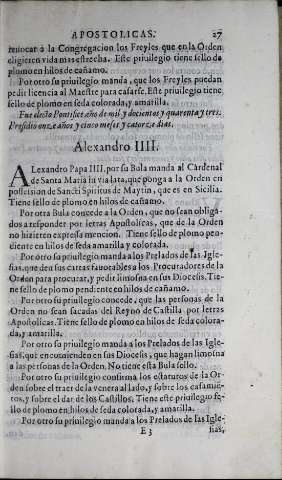 APOSTOLICAS. 27
reuocar a la Congregacion los Freyles que en la Orden
eligieren vida mas estrecha. Este priuilegio tiene sello de
plomo en hilos de cañamo.
Por otro su priuilegio manda, que los Freyles puedan
pedir licencia al Maestre para casarse. Este priuilegio tiene
sello de plomo en seda colorada, y amarilla.
Fue electo Pontifice año de mil y docientos y quarenta y tres.
Presidio onze años y cinco meses y catorze dias.
Alexandro IIII.
ALexandro Papa IIII. por su Bula manda al Cardenal
de Santa Maria in via lata, que ponga a la Orden en
possession de Sancti Spiritus de Maytin, que es en Sicilia.
Tiene sello de plomo en hilos de cañamo.
Por otra Bula concede a la Orden, que no sean obliga-
dos a responder por letras Apostolicas, que de la Orden
no hizieren expressa mencion. Tiene sello de plomo pen-
diente en hilos de seda amarilla y colorada.
Por otro su priuilegio manda a los Prelados de las Igle-
sias, que den sus cartas fauorables a los Procuradores de la
Orden para procurar, y pedir limosna en sus Diocesis. Tie-
ne sello de plomo pendiente en hilos de cañamo.
Por otro su priuilegio concede, que las personas de la
Orden no sean sacadas del Reyno de Castilla por letras
Apostolicas. Tiene sello de plomo en hilos de seda colora-
da, y amarilla.
Por otro su priuilegio manda a los Prelados de las Igle-
sias, que encomienden en sus Diocesis, que hagan limosna
a las personas de la Orden. No tiene esta Bula sello.
Por otro su priuilegio confirma los estatutos de la Or-
den sobre el traer de la venera al lado, y sobre los casamie-
tos, y sobre el dar de los Castillos. Tiene este priuilegio se-
llo de plomo en hilos de seda colorada, y amarilla.
Por otro su priuilegio manda a los Prelados de las Igle-
E 3 sias,